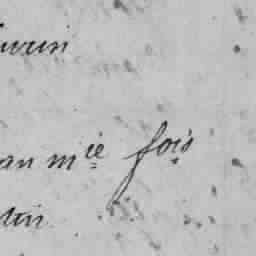 urin
an mie fois
tin